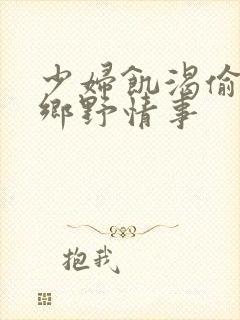 少婦飢渴偷
鄉野情事
抱我